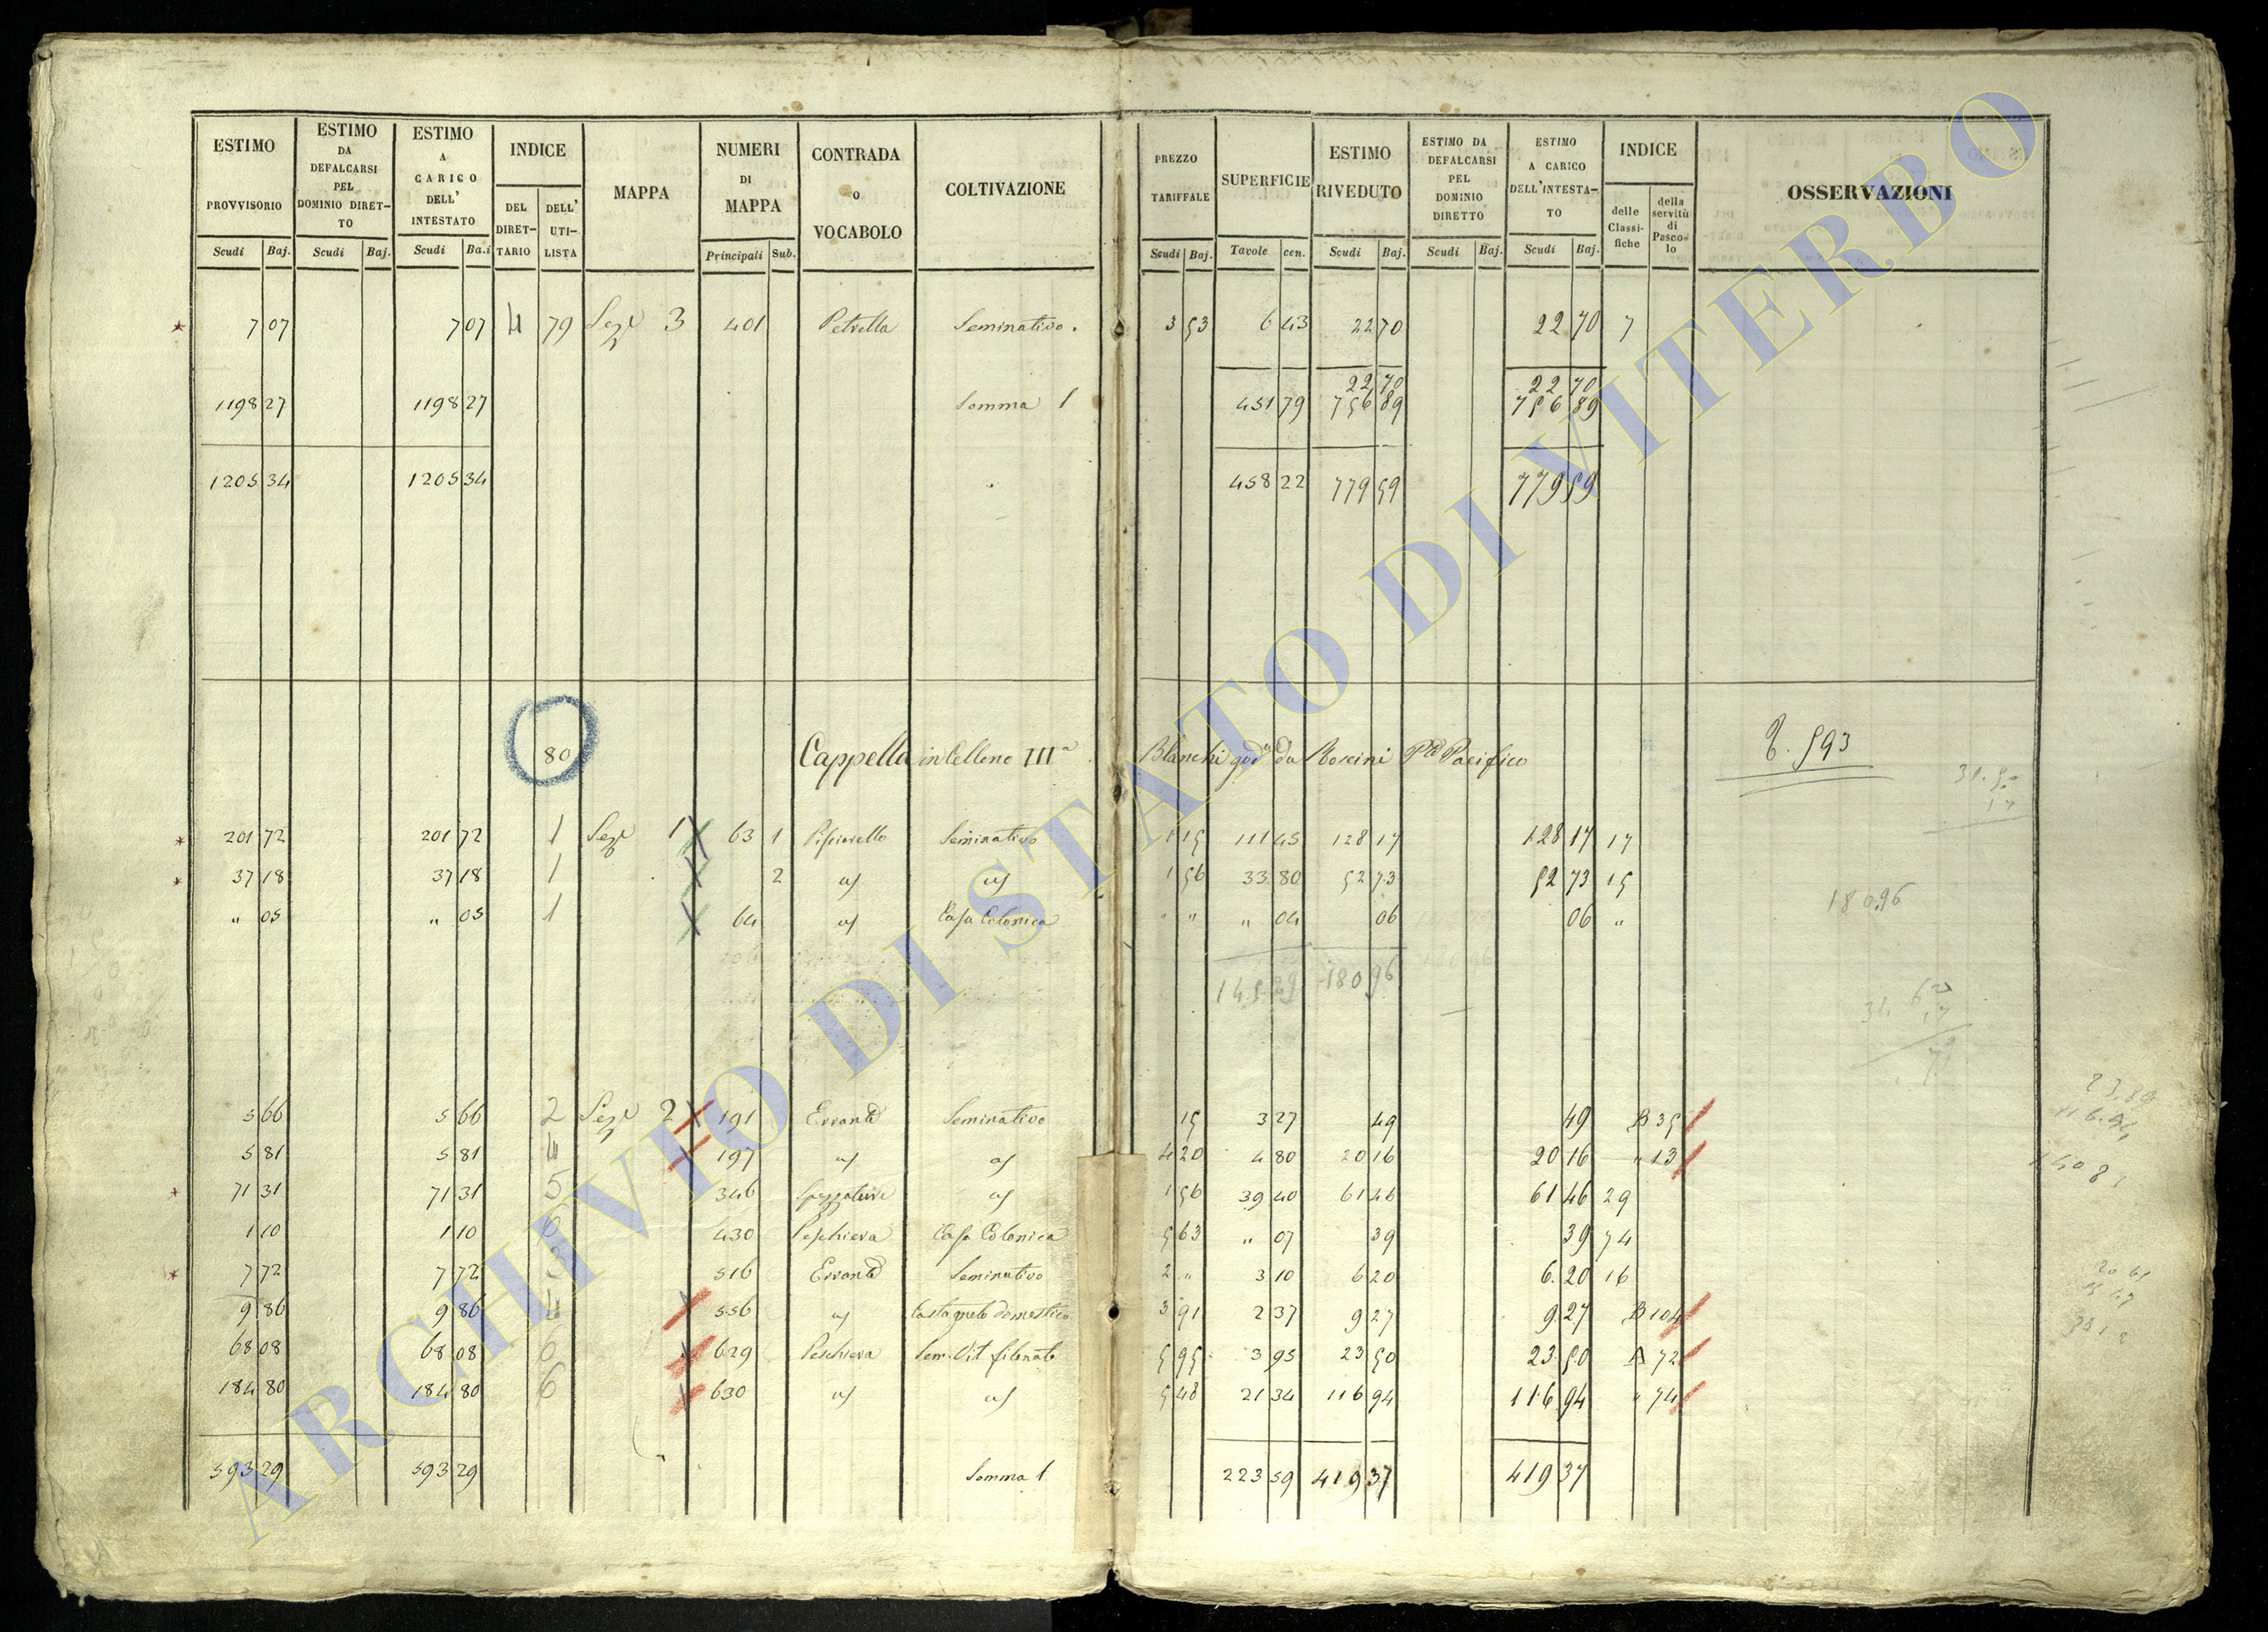 ESTIMO PROVVISORIO | ESTIMO DA DEFALCARSI PEL DOMINIO DIRETTO | ESTIMO A CARICO DELL' INTESTATO | INDICE | MAPPA | NUMERI DI MAPPA | CONTRADA o VOCABOLO | COLTIVAZIONE | PREZZO TARIFFALE | SUPERFICIE | ESTIMO RIVEDUTO | ESTIMO DA DEFALCARSI PEL DOMINIO DIRETTO | ESTIMO A CARICO DELL'INTESTATO | INDICE | OSSERVAZIONI
Scudi | Baj. | Scudi | Baj. | Scudi | Ba.i | DEL DIRETTARIO | DELL' UTILISTA | Principali | Sub. | Scudi | Baj. | Tavole | cen. | Scudi | Baj. | Scudi | Baj. | Scudi | Baj. | delle Classifiche | della servitù di Pascolo
7 07 | 7 07 | 79 | Sez.e 3 | 401 | Petrella | Seminativo. | 3 53 | 6 43 | 22 70 | 22 70 | 7
22 70 | 22 70
1198 27 | 1198 27 | Somma 1 | 451 79 | 756 89 | 756 89
1205 34 | 1205 34 | 458 22 | 779 59 | 779 59
80 | Cappella in Celleno III a | Blanchi god.a da Roscini P.d Pacifico | 593
201 72 | 201 72 | 1 | Sez.e 1 | 63 | 1 | Pisciarello | Seminativo | 1 15 | 111 45 | 128 17 | 128 17 | 17
37 18 | 37 18 | 1 | 2 | 1 56 | 33 80 | 52 73 | 52 73 | 15
" 05 | " 05 | 1 | 64 | Casa Colonica | " " | " 04 | 06 | 06 | "
18096
145 29 | 180 96
5 66 | 5 66 | 2 | Sez.e 2 | 191 | Seminativo | 15 | 3 27 | 49 | 49 | B 35
5 81 | 5 81 | 197 | 4 20 | 4 80 | 20 16 | 20 16 | " 13
71 31 | 71 31 | 5 | 346 | 1 56 | 39 40 | 61 46 | 61 46 | 29
1 10 | 1 10 | 6 | 430 | Peschiera | Casa Colonica | 5 63 | " 07 | 39 | 39 | 74
7 72 | 7 72 | 516 | Seminativo | 2 " | 3 10 | 6 20 | 6.20 | 16
9 86 | 9 86 | 556 | Castagneto domestico | 3 91 | 2 37 | 9 27 | 9 27 | B 104
68 08 | 68 08 | 6 | 629 | Peschiera | Sem. Vit. filonato | 5 95 | 3 95 | 23 50 | 23 50 | A 72
184 80 | 184 80 | 6 | 630 | 5 48 | 21 34 | 116 94 | 116 94 | " 74
593 29 | 593 29 | Somma 1 | 223 59 | 419 37 | 419 37
ARCHIVIO DI STATO DI VITERBO